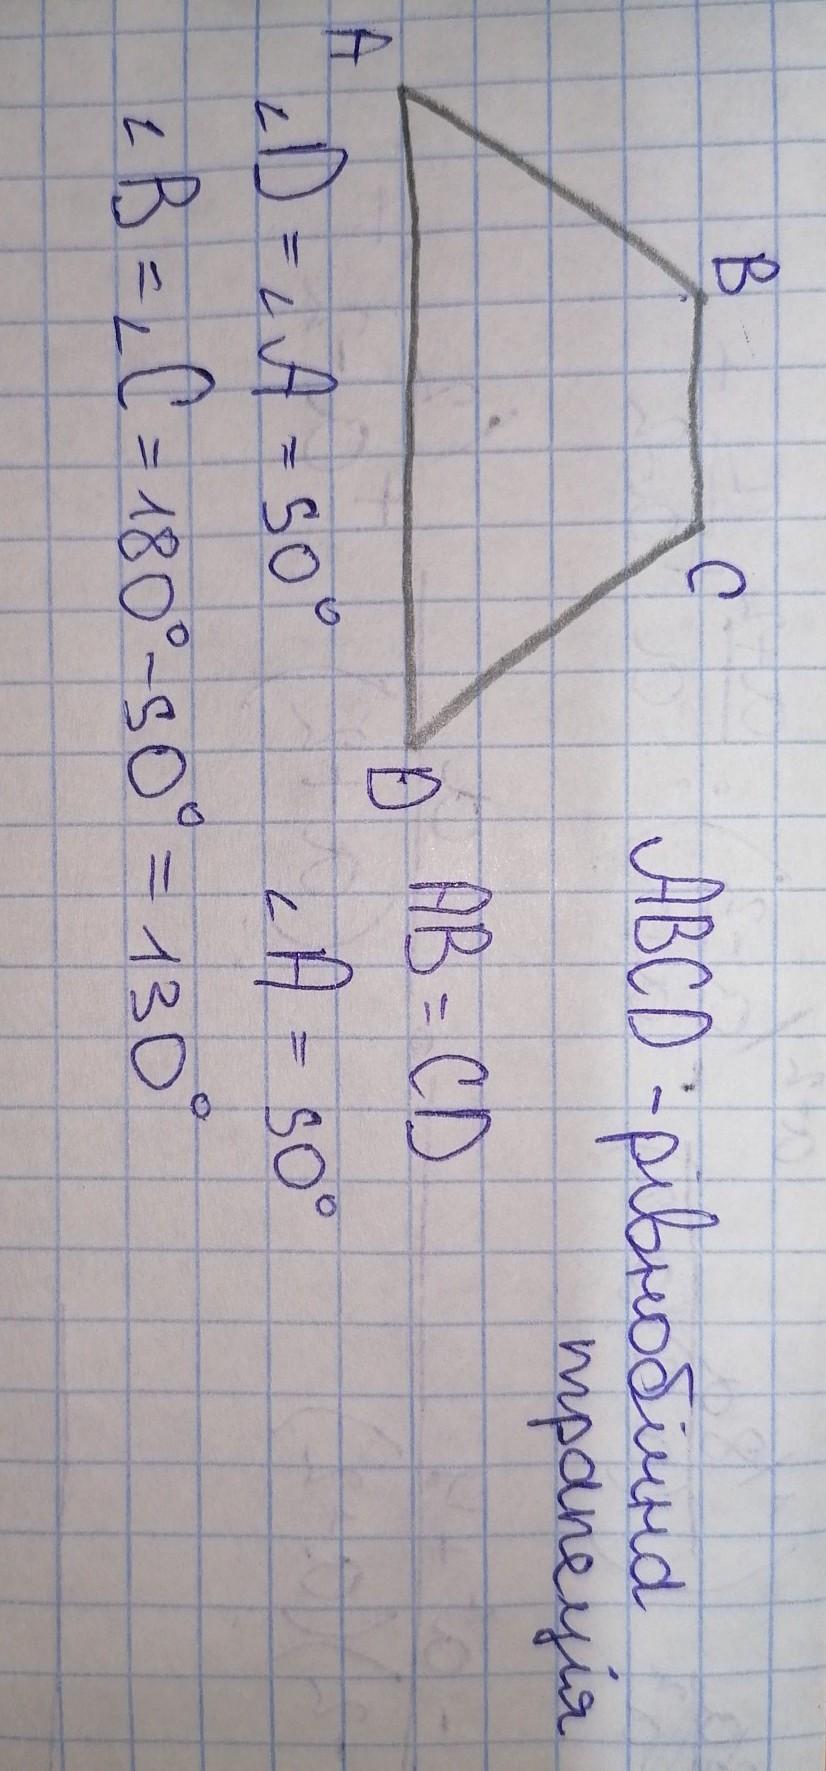 B
C
A
D
ABCD - рівнобічна
трапеція
AB = CD
∠A = 50°
∠D = ∠A = 50°
∠B = ∠C = 180° - 50° = 130°